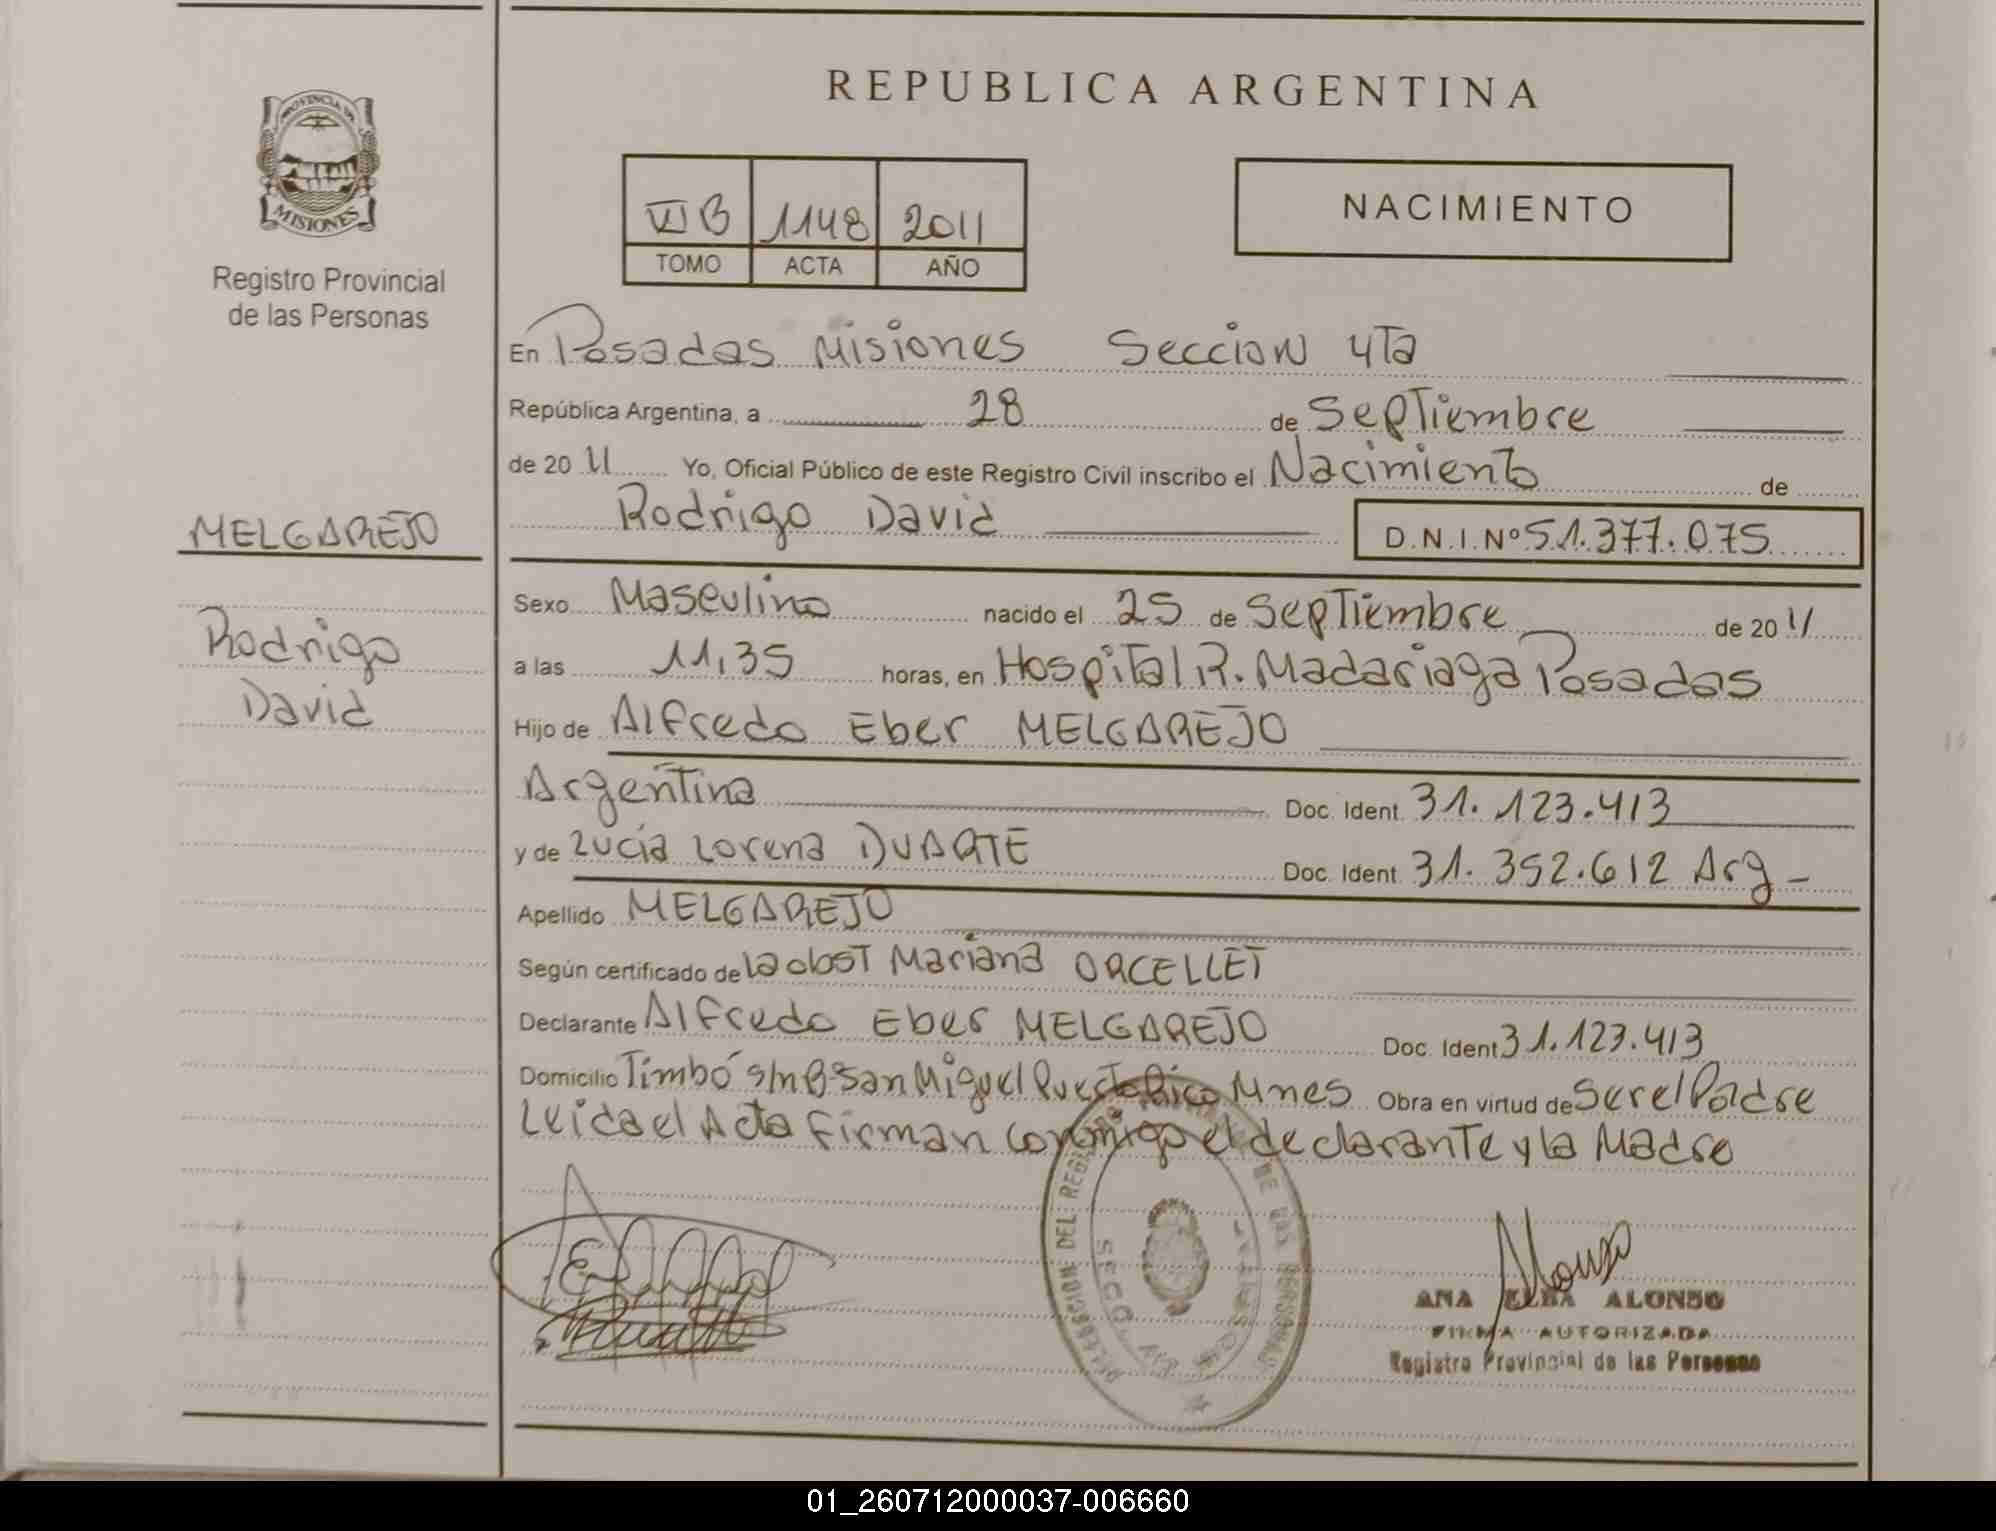 REPUBLICA ARGENTINA
PROVINCIA DE
MISIONES
Registro Provincial
de las Personas
VI B 1148 2011
TOMO ACTA AÑO
NACIMIENTO
En Posadas Misiones Seccion 4Ta
República Argentina, a 28 de Septiembre
de 20 11 Yo, Oficial Público de este Registro Civil inscribo el Nacimiento de
Rodrigo David D.N.I.Nº 51.377.075
MELGAREJO
Rodrigo
David
Sexo Masculino nacido el 25 de Septiembre de 20 11
a las 11,35 horas, en Hospital R. Madariaga Posadas
Hijo de Alfredo Eber MELGAREJO
Argentina Doc. Ident. 31.123.413
y de Lucia Lorena DUARTE Doc. Ident. 31.352.612 Arg -
Apellido MELGAREJO
Según certificado de la obst Mariana ORCELLET
Declarante Alfredo Eber MELGAREJO Doc. Ident 31.123.413
Domicilio Timbó s/n B-San Miguel Puerto Rico Mnes Obra en virtud de Ser el Padre
Leida el Acta Firman conmigo el declarante y la Madre
DELEGACION DEL REGISTRO DE LAS PERSONAS
Alonso
ANA ELBA ALONSO
FIRMA AUTORIZADA
Registro Provincial de las Personas
01_260712000037-006660